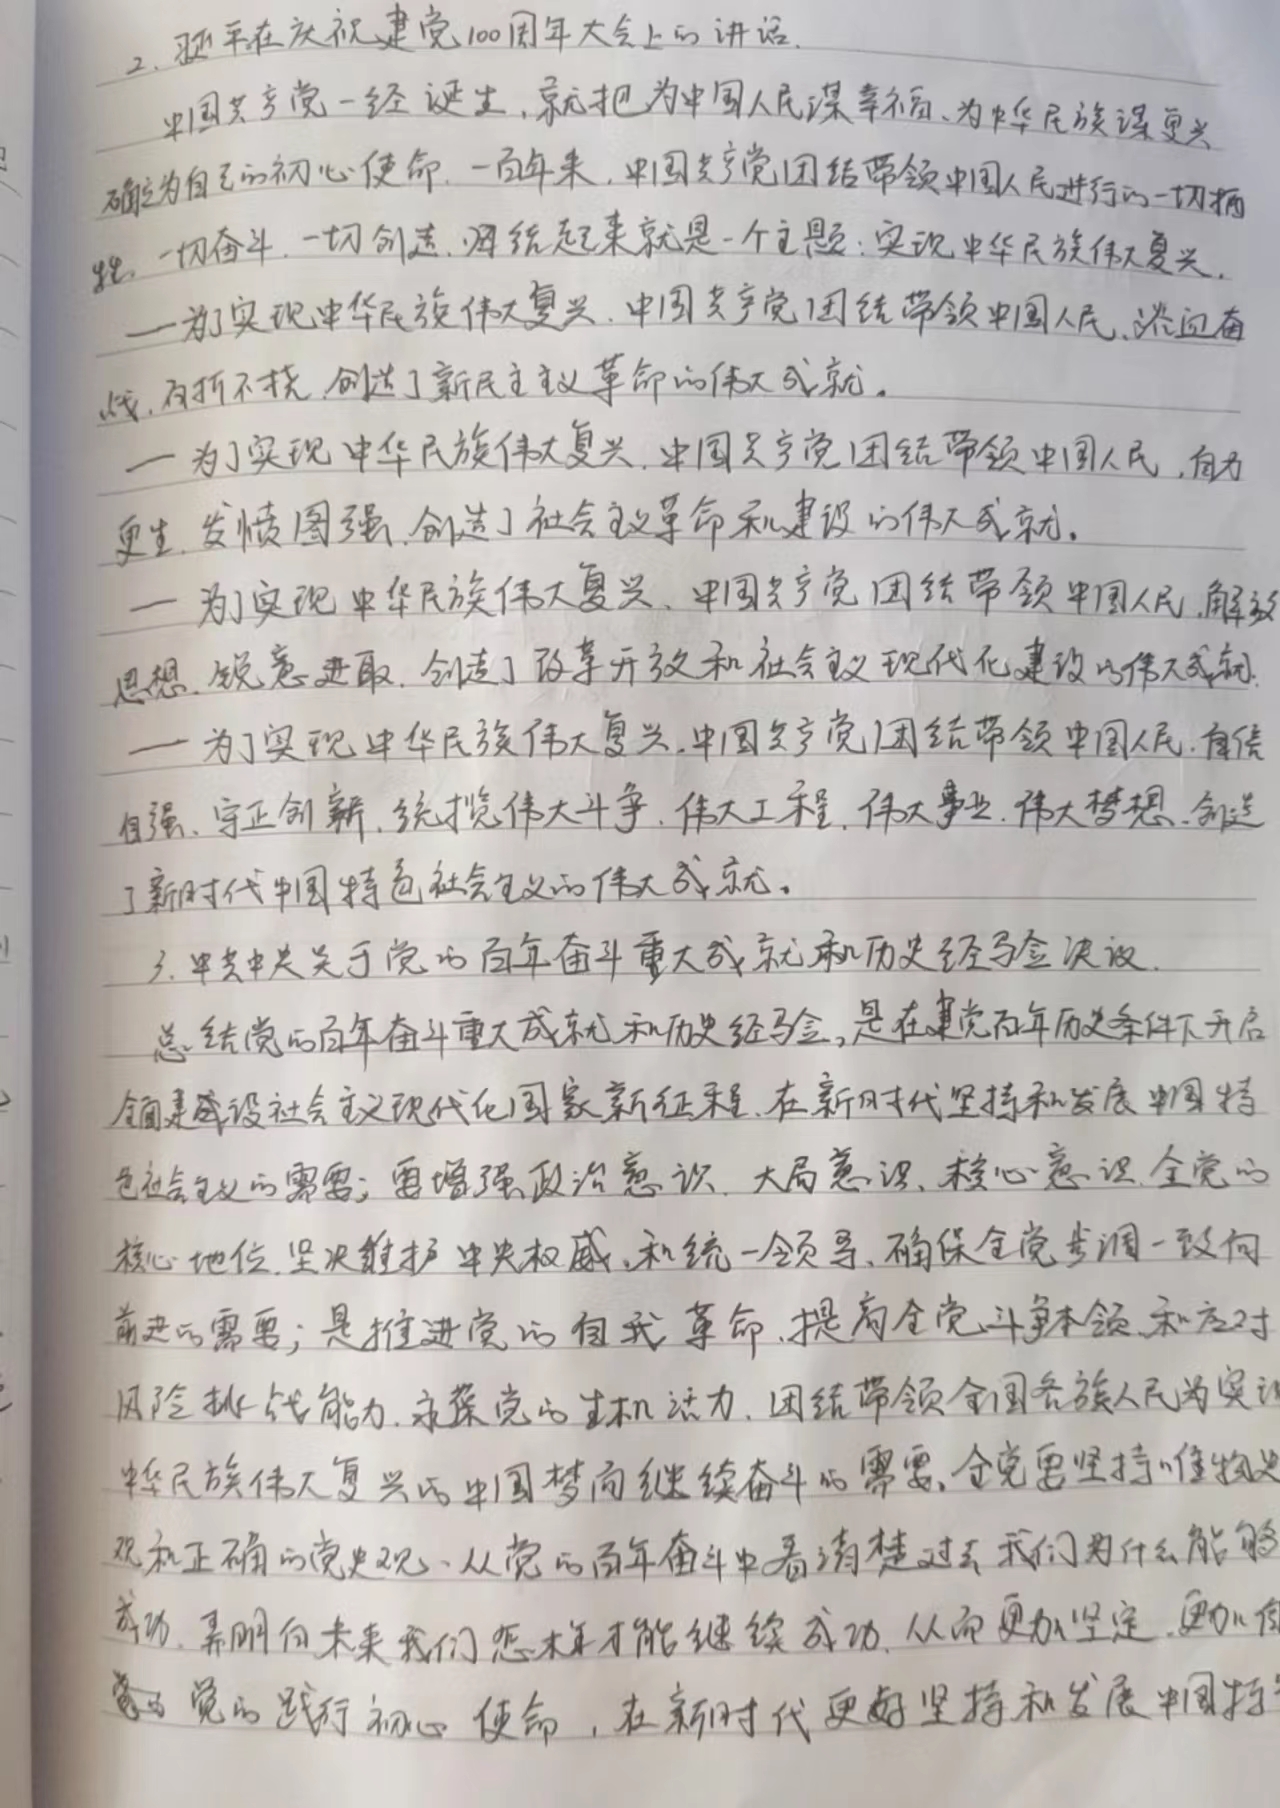 2. 习近平在庆祝建党100周年大会上的讲话.
中国共产党一经诞生,就把为中国人民谋幸福、为中华民族谋复兴
确立为自己的初心使命.一百年来,中国共产党团结带领中国人民进行的一切牺
牲、一切奋斗、一切创造,归结起来就是一个主题:实现中华民族伟大复兴.
一为了实现中华民族伟大复兴.中国共产党团结带领中国人民、浴血奋
战、百折不挠,创造了新民主主义革命的伟大成就。
一为了实现中华民族伟大复兴.中国共产党团结带领中国人民,自力
更生、发愤图强、创造了社会主义革命和建设的伟大成就。
一为了实现中华民族伟大复兴、中国共产党团结带领中国人民、解放
思想、锐意进取,创造了改革开放和社会主义现代化建设的伟大成就.
一为了实现中华民族伟大复兴.中国共产党团结带领中国人民.自信
自强、守正创新、统揽伟大斗争、伟大工程、伟大事业、伟大梦想、创造
了新时代中国特色社会主义的伟大成就。
3. 中共中央关于党的百年奋斗重大成就和历史经验决议.
总结党的百年奋斗重大成就和历史经验,是在建党百年历史条件下开启
全面建设社会主义现代化国家新征程、在新时代坚持和发展中国特
色社会主义的需要;要增强政治意识、大局意识、核心意识.全党的
核心地位.坚决维护中央权威、和统一领导、确保全党步调一致向
前进的需要;是推进党的自我革命、提高全党斗争本领、和应对
风险挑战能力、永葆党的生机活力、团结带领全国各族人民为实现
中华民族伟大复兴的中国梦而继续奋斗的需要。全党要坚持唯物史
观和正确的党史观、从党的百年奋斗中看清楚过去我们为什么能够
成功、弄明白未来我们怎样才能继续成功、从而更加坚定、更加自
党的践行初心使命,在新时代更好坚持和发展中国特